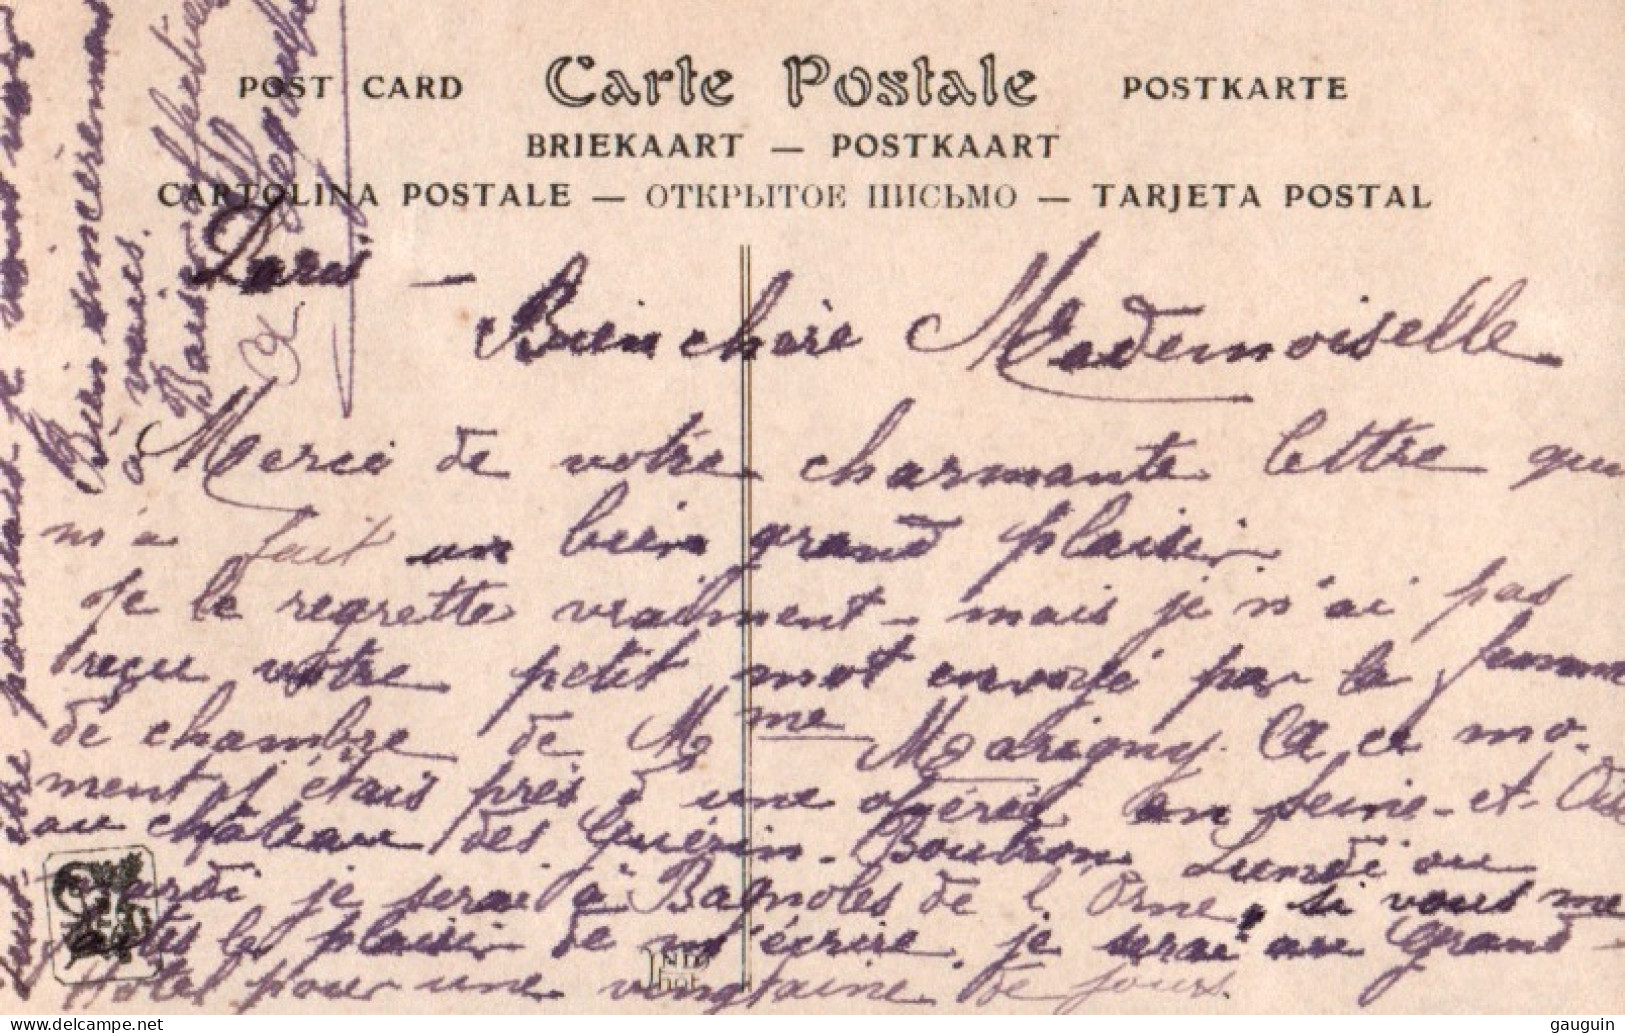 POST CARD Carte Postale POSTKARTE
BRIEKAART — POSTKAART
CARTOLINA POSTALE — ОТКРЫТОЕ ПИСЬМО — TARJETA POSTAL
Paris —
Bien chère Mademoiselle
Merci de votre charmante lettre qui
m'a fait un bien grand plaisir
Je le regrette vraiment — mais je n'ai pas
reçu votre petit mot envoyé par la femme
de chambre de Mme Marigny. A ce mo-
ment j'étais près d'une opérée en Seine-et-Oise
au château des Guérin-Boutron. Lundi ou
mardi je serai à Bagnoles de l'Orne, si vous me
faites le plaisir de m'écrire, je serai au Grand-
Hôtel pour une vingtaine de jours.
peut-être pourrais-je vous voir
Bien sincèrement
à vous.
Baisers affectueux
IND
Phot
www.delcampe.net
gauguin